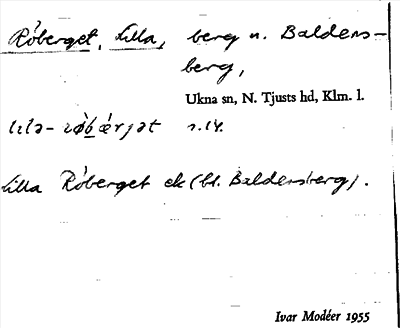 Róberget, Lilla, berg n. Baldens-
berg,
Ukna sn, N. Tjusts hd, Klm. l.
Lilla Róberget ek (bl. Baldersberg).
Ivar Modéer 1955